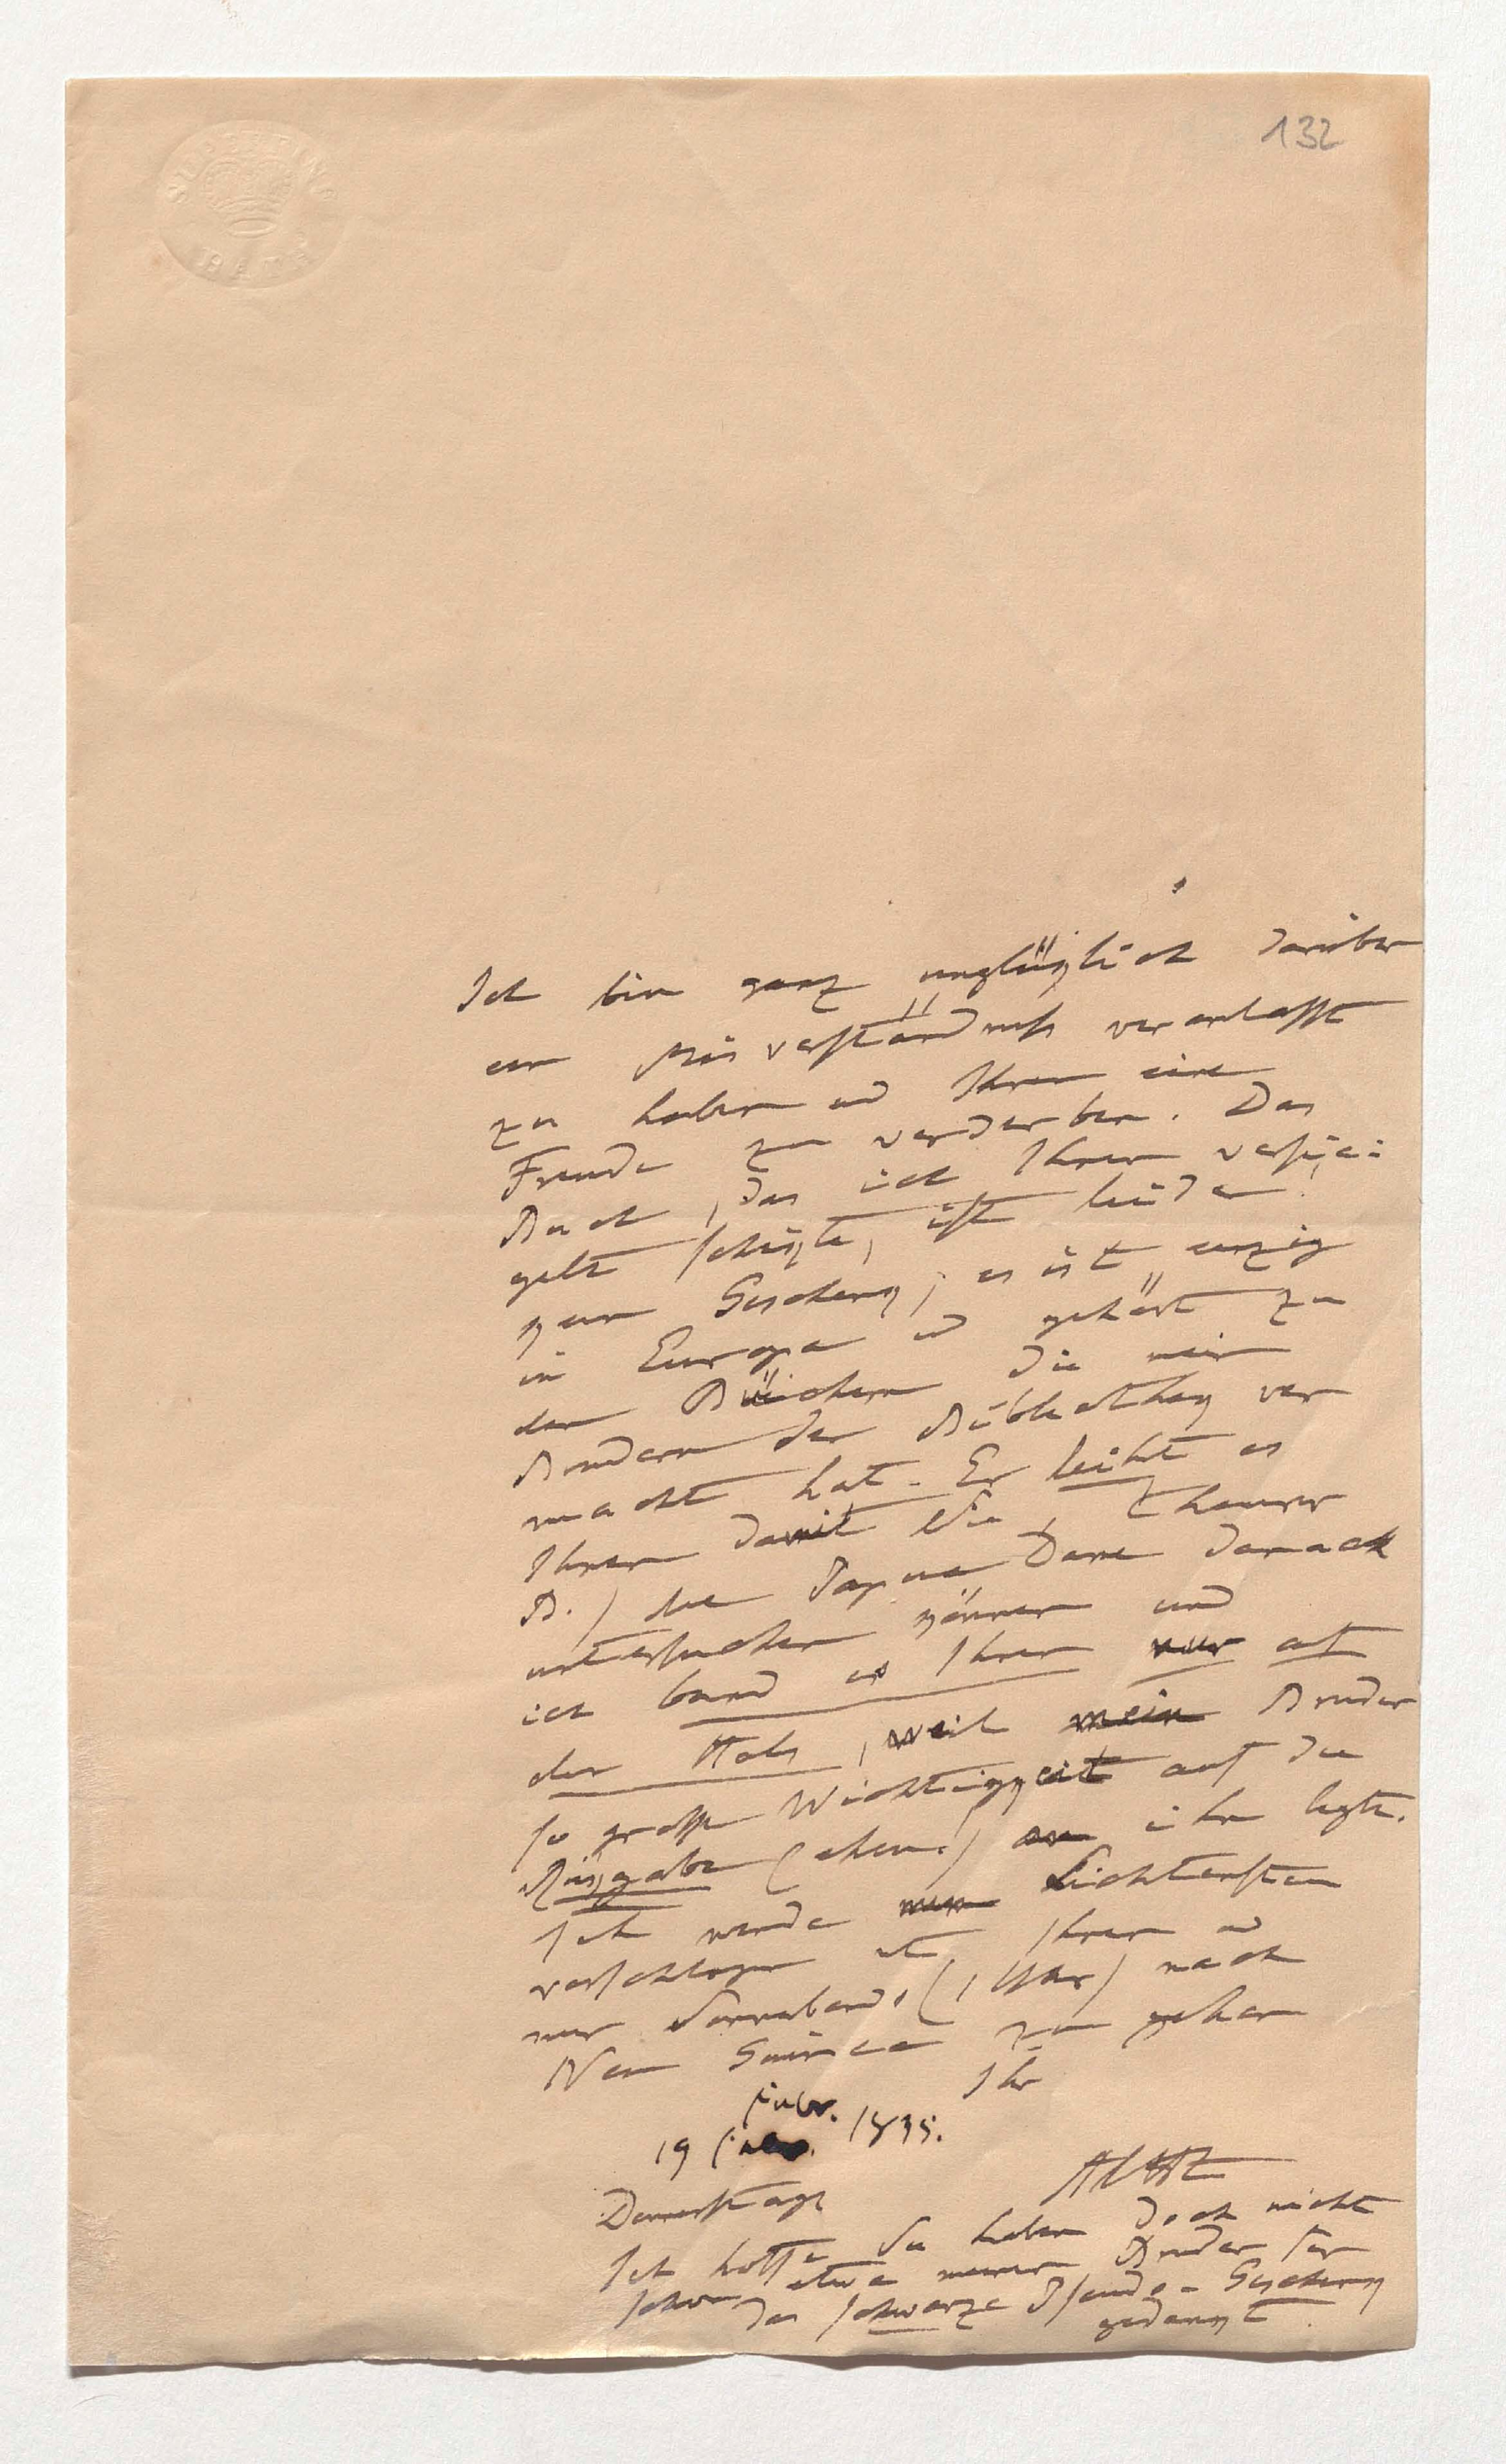 132
SUPERFINE
BATH
Ich bin ganz unglüklich darüber
ein Misverständniß veranlasst
zu haben und Ihnen eine
Freude zu verderben. Das
Buch, das ich Ihnen versie-
gelt schikte, ist leider!
kein Geschenk; es ist einzig
in Europa und gehört zu
den Büchern die mein
Brudern der Bibliothek ver
macht hat. Er leiht es
Ihnen damit Sie, theurer
B.) die Papua Dame danach
untersuchen können und
ich band es Ihnen nur auf
den Hals, weil mein Bruder
so große Wichtigkeit auf die
Rükgabe (ehem.) an ihn legte.
Ich werde nun Lichtenstein
vorschlagen mit Ihnen und
mir Sonnabend, (1 Uhr) nach
Neu Guinea zu gehen
Ihr
19 1835.
Donnerstags
AlHt
Ich hoffe Sie haben doch nicht
schon etwa meinem Bruder für
das schwarze Pseudo-Geschenk
gedankt.